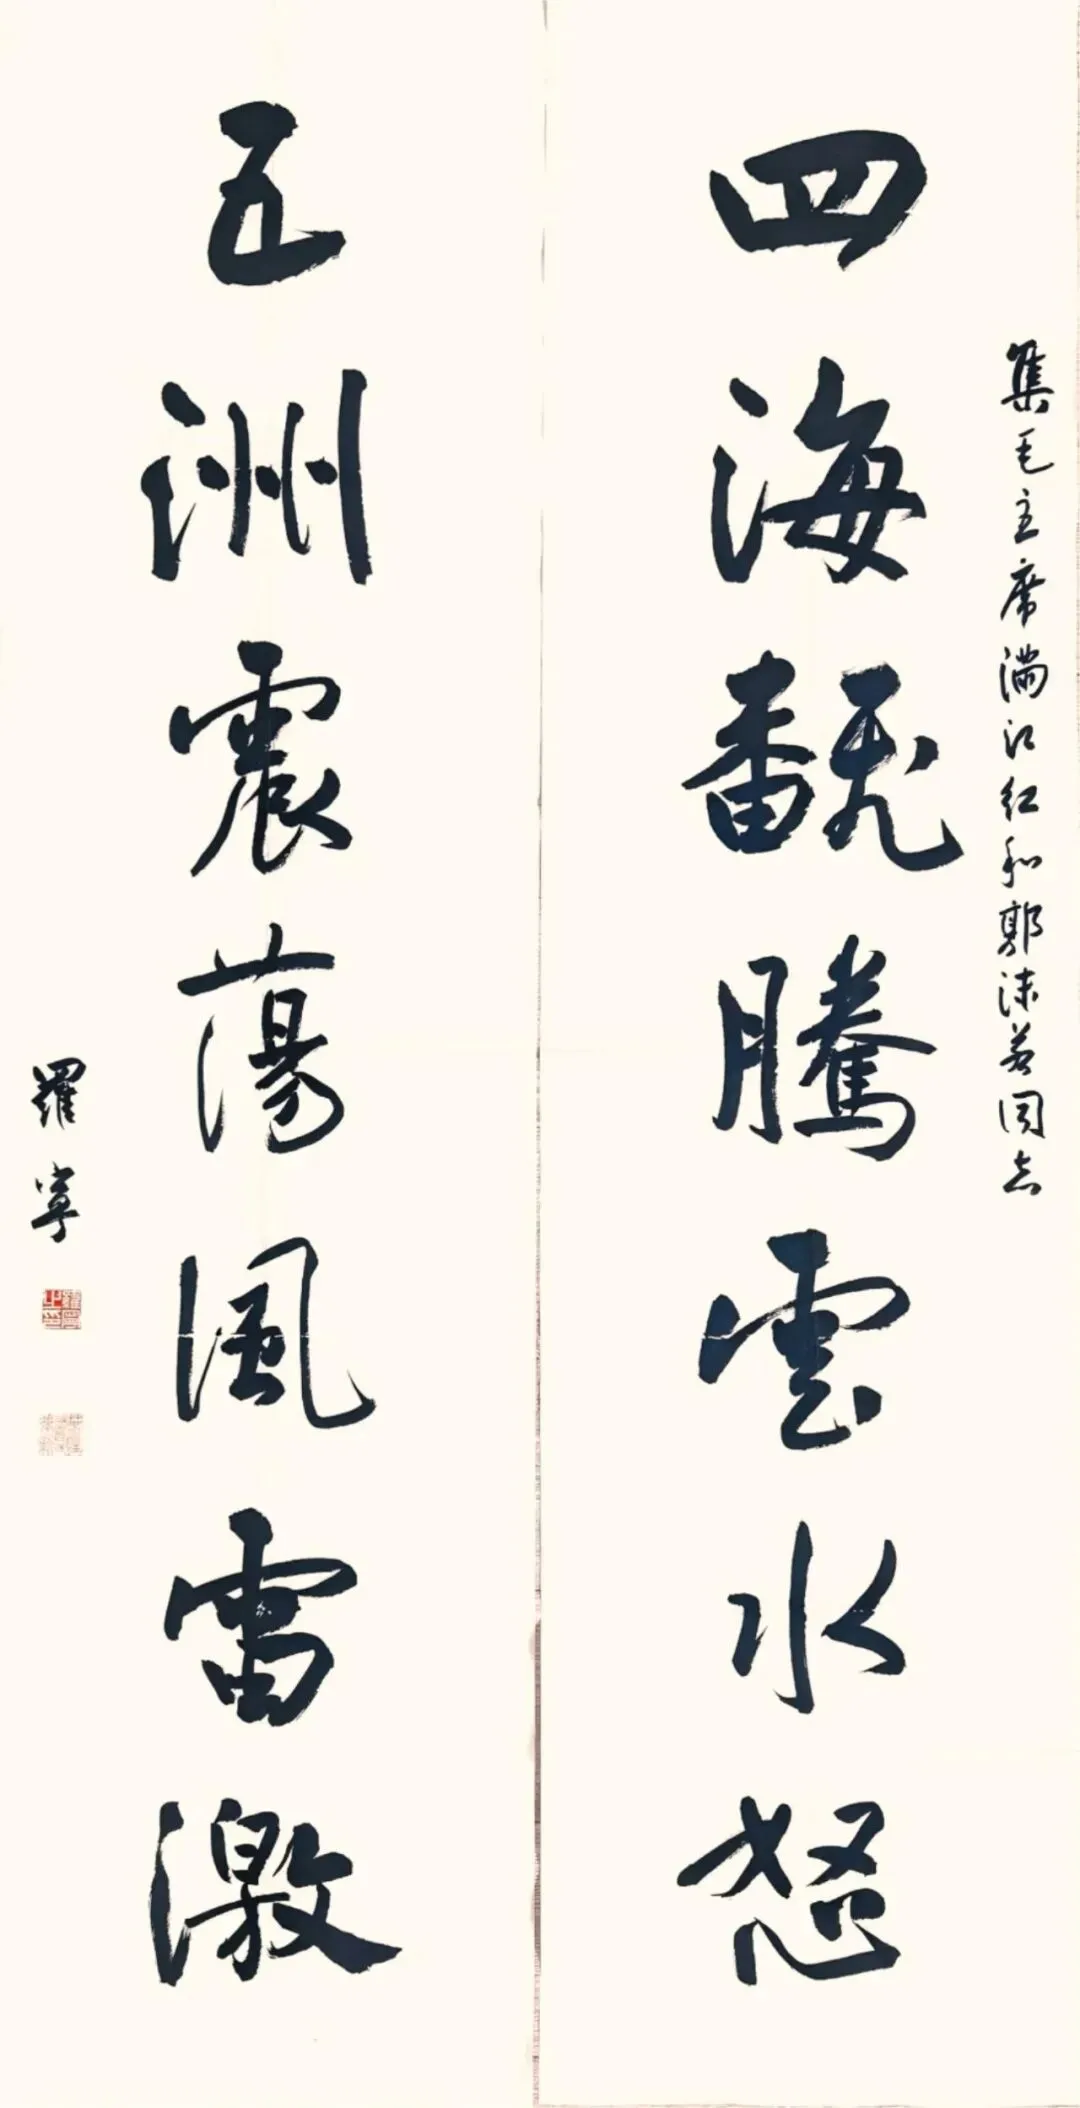 集毛主席满江红和郭沫若同志
四海飜騰雲水怒
五洲震蕩風雷激
羅寧